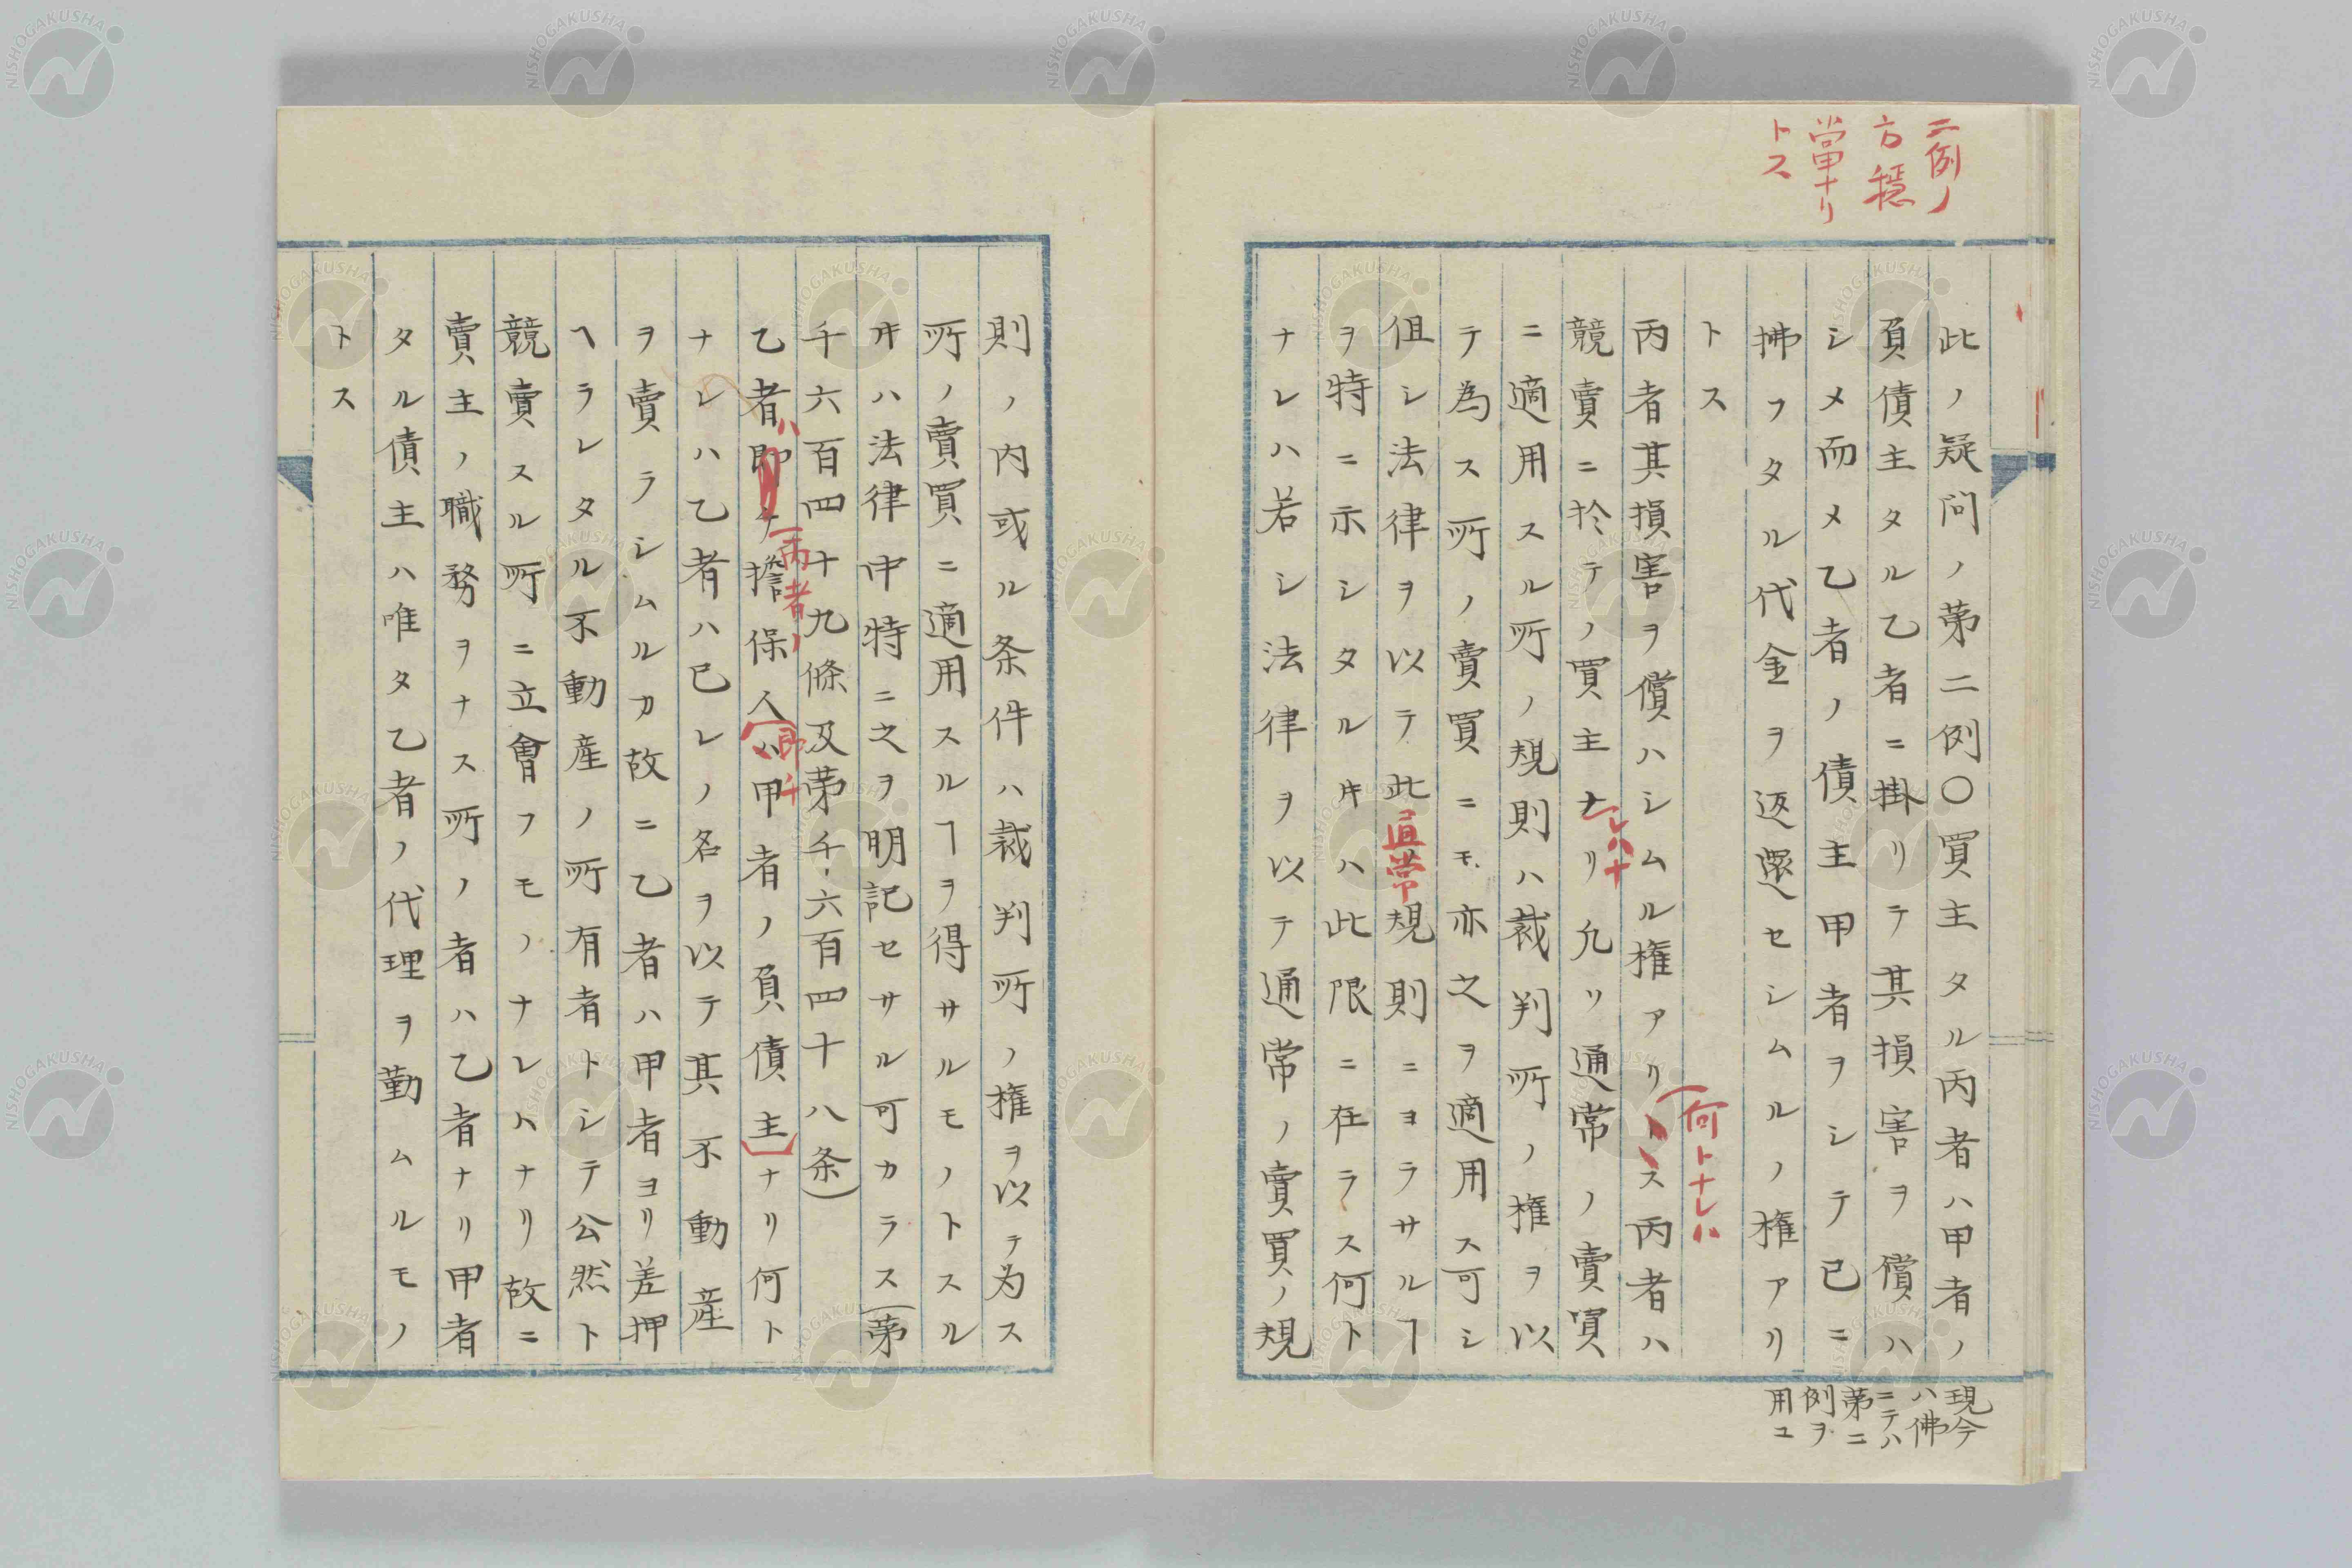 二例ノ
方穏
當ナリ
トス
此ノ疑问ノ第二例〇買主タル丙者ハ甲者ノ
負債主タル乙者ニ掛リテ其損害ヲ償ハ
シメ而メ乙者ノ債主甲者ヲシテ已ニ
拂フタル代金ヲ返還セシムルノ権アリ
トス
何トナレハ
丙者其損害ヲ償ハシムル権アリトス丙者ハ
競賣ニ於テノ買主ナリ凢ソ通常ノ賣買
レハナ
ニ適用スル所ノ規則ハ裁判所ノ権ヲ以
テ為ス所ノ賣買ニモ亦之ヲ適用ス可シ
但シ法律ヲ以テ此通常規則ニヨラサルヿ
ヲ特ニ示シタルキハ此限ニ在ラス何ト
ナレハ若シ法律ヲ以テ通常ノ賣買ノ規
現今
ハ佛
ニテハ
第二
例ヲ
用ユ
則ノ内或ル条件ハ裁判所ノ権ヲ以テ为ス
所ノ賣買ニ適用スルヿヲ得サルモノトスル
キハ法律中特ニ之ヲ明記セサル可カラス(第
千六百四十九條及第千六百四十八条)
ハ
丙者ノ
即チ
乙者即チ擔保人ハ甲者ノ負債主ナリ何ト
ナレハ乙者ハ已レノ名ヲ以テ其不動産
ヲ賣ラシムルカ故ニ乙者ハ甲者ヨリ差押
ヘラレタル不動産ノ所有者トシテ公然ト
競賣スル所ニ立會フモノナレハナリ故ニ
賣主ノ職務ヲナス所ノ者ハ乙者ナリ甲者
タル債主ハ唯タ乙者ノ代理ヲ勤ムルモノ
トス
NISHOGAKUSHA